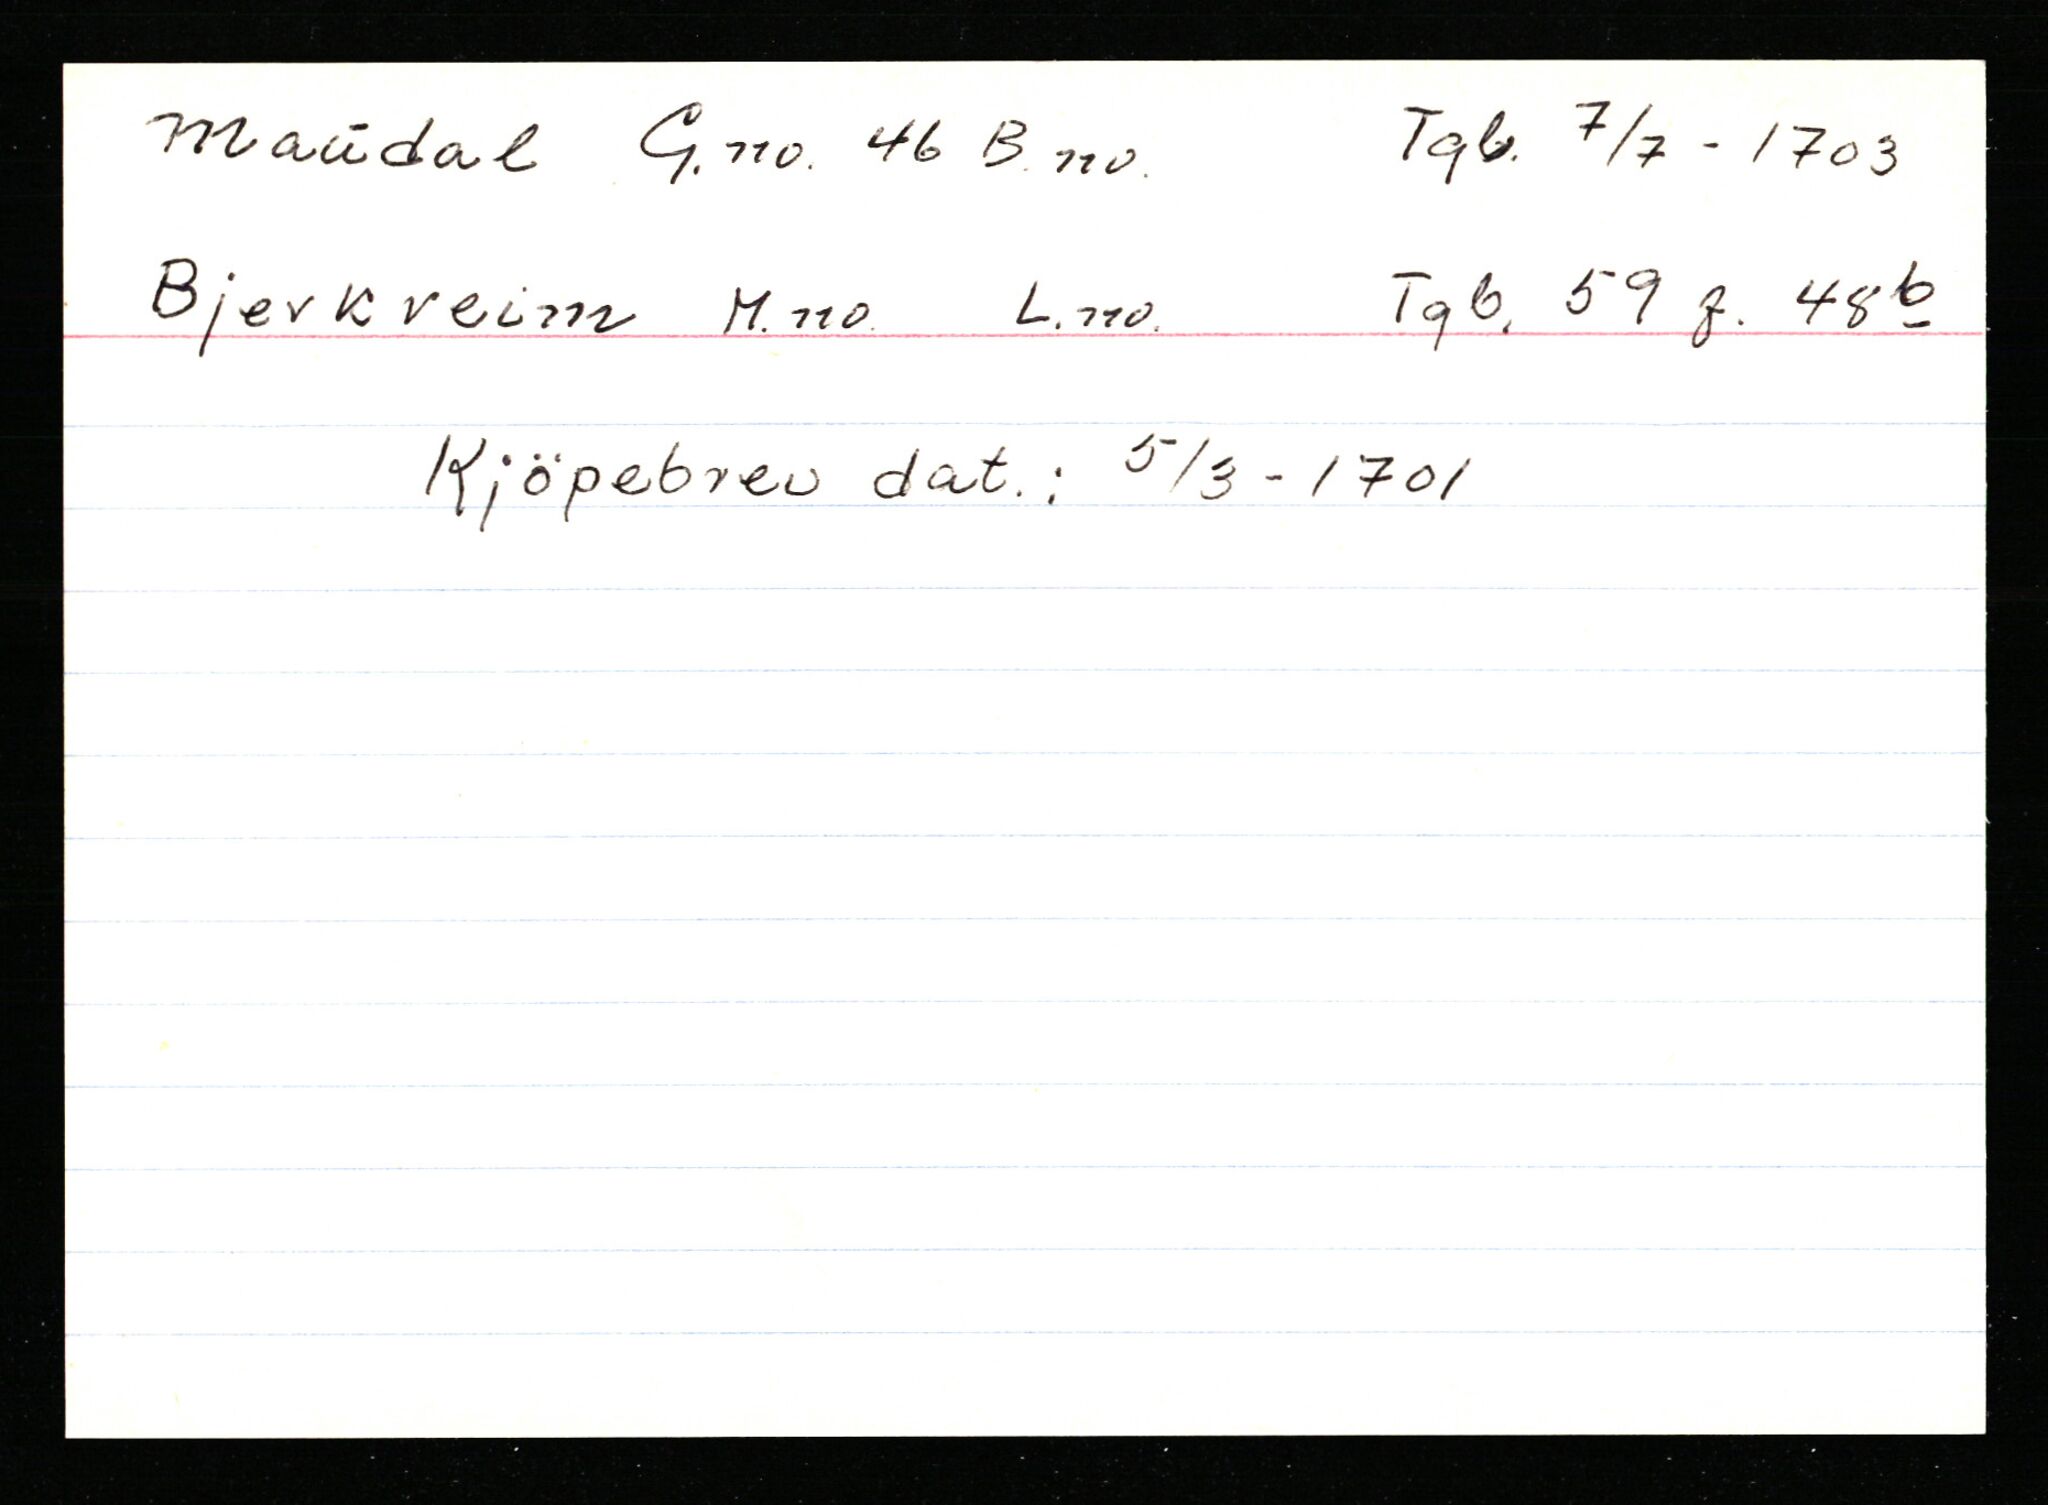 Maudal G.no. 46 B.no. Tgb. 7/7 - 1703
Bjerkreim M.no. L.no. Tgb. 59 f. 48b
Kjöpebrev dat.: 5/3 - 1701